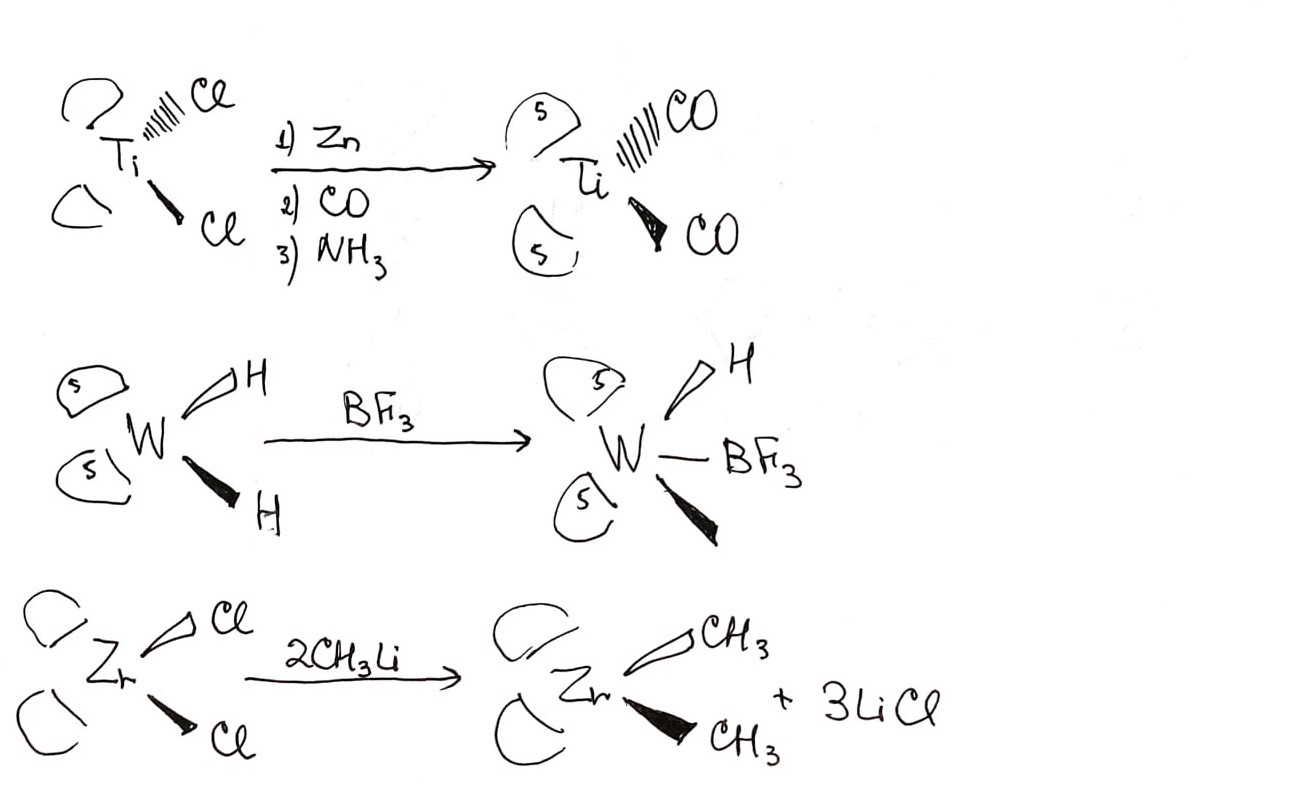 Ti Cl Cl
1) Zn
2) CO
3) NH3
5 5 Ti CO CO
5 5 W H H
BF3
5 5 W H BF3
Zr Cl Cl
2CH3Li
Zr CH3 CH3 + 3LiCl